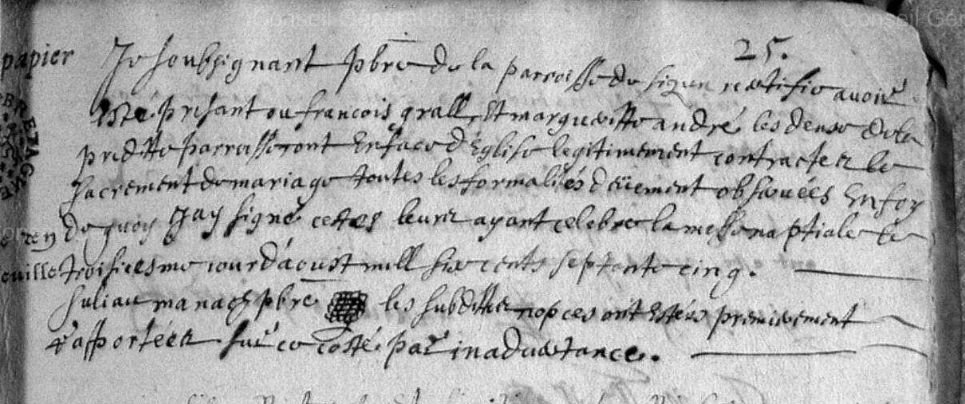 25.
papier
Je soubsignant pbre de la parroisse de sizun certifie avoir
esté présant ou francois grall, Et margueritte andré les deux de la
preditte parroisse ont En face d'Eglise legitimement contracter le
sacrement de mariage toutes les formalités deüement observées En foy
de quoy Jay signé cestes leurs ayant celebre la messe naptiale le
troisiesme iour d'aoust mill six cents septante cinq.
pbre les subdittes nopces ont Estés premierement
rapportées sur ce costé par inadvertance.